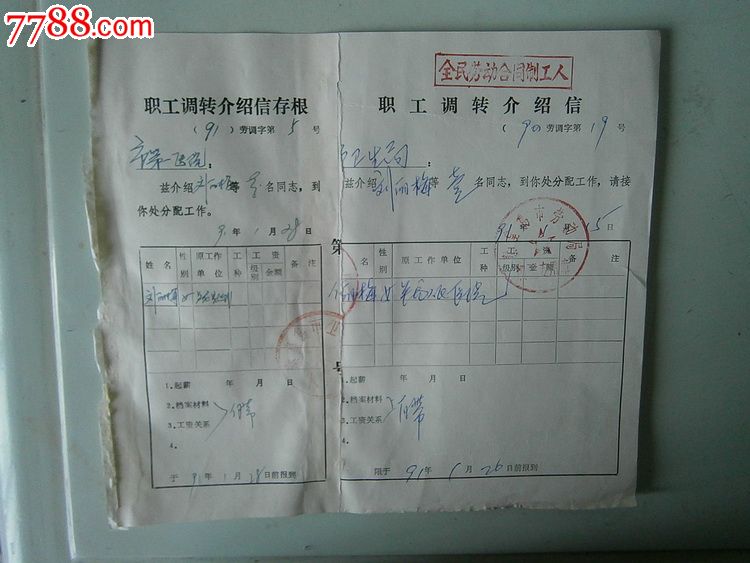 7788.com
全民劳动合同制工人
职工调转介绍信存根
(91)劳调字第5号
市第一医院:
兹介绍刘丽梅等壹名同志,到
你处分配工作。
91年1月28日
姓名 性别 原工作单位 工种 工资 级别 金额 备注
刘丽梅 女
1.起薪 年 月 日
2.档案材料
3.工资关系
自带
4.
于91年1月28日前报到
第
号
职工调转介绍信
(90)劳调字第19号
卫生局:
兹介绍刘丽梅等壹名同志,到你处分配工作,请接
91 15日
姓名 性别 原工作单位 工种 工资 级别 金额 备注
梅 女
1.起薪 年 月 日
2.档案材料
3.工资关系
自带
4.
限于91年1月26日前报到